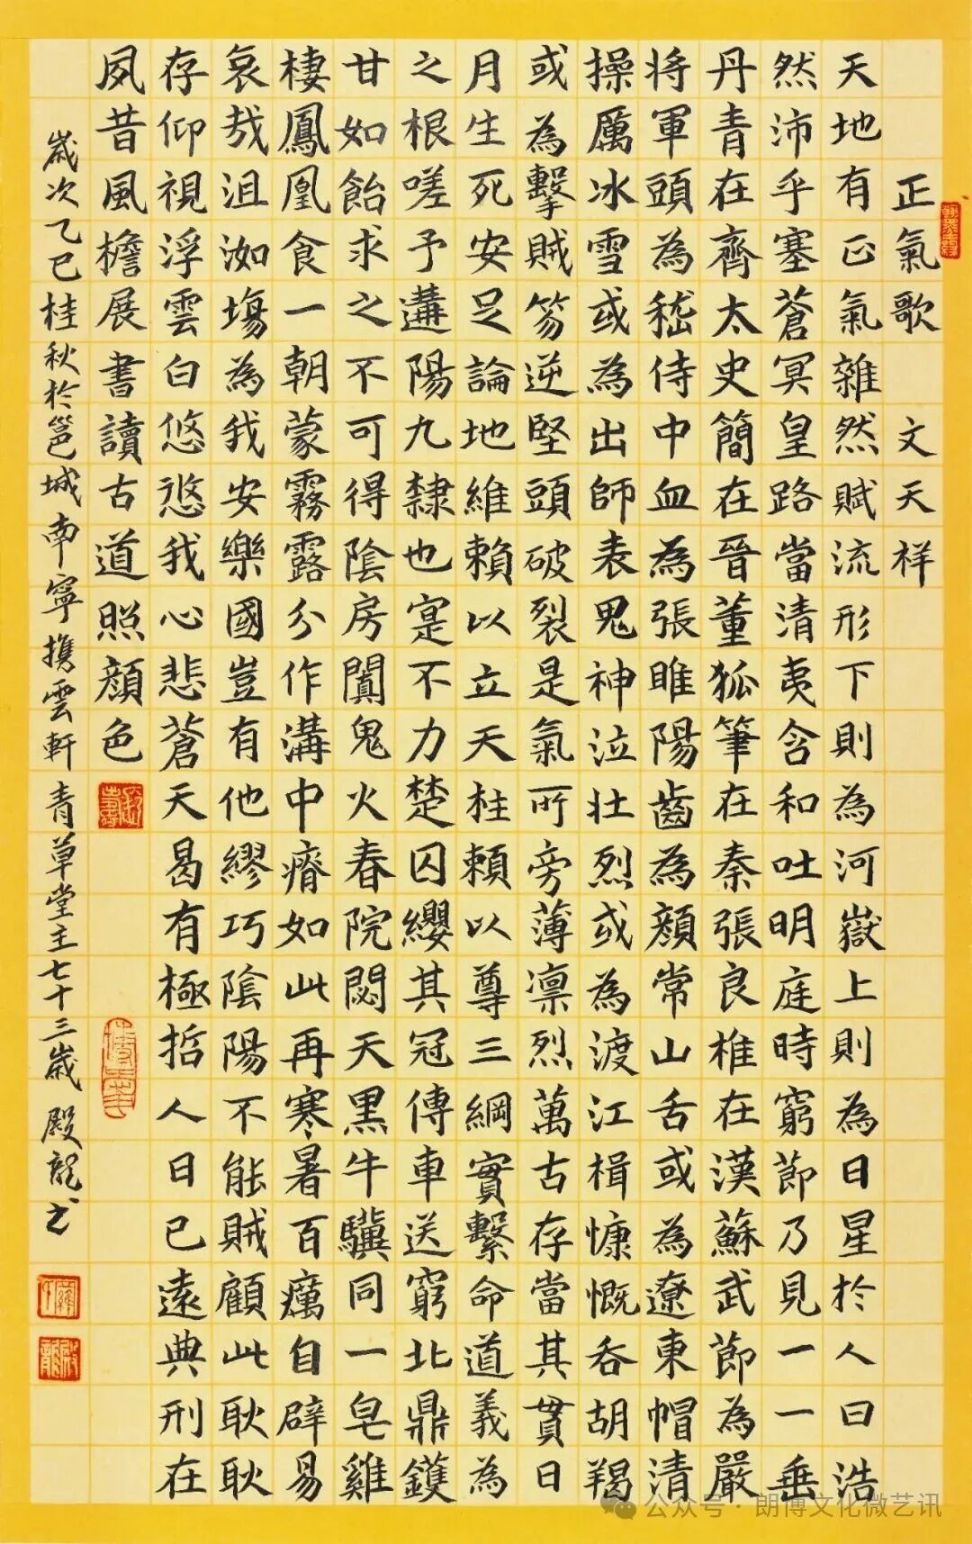 正氣歌 文天祥
天地有正氣雜然賦流形下則為河嶽上則為日星於人曰浩
然沛乎塞蒼冥皇路當清夷含和吐明庭時窮節乃見一一垂
丹青在齊太史簡在晉董狐筆在秦張良椎在漢蘇武節為嚴
將軍頭為嵇侍中血為張睢陽齒為顏常山舌或為遼東帽清
操厲冰雪或為出師表鬼神泣壯烈或為渡江楫慷慨吞胡羯
或為擊賊笏逆堅頭破裂是氣所旁薄凛烈萬古存當其貫日
月生死安足論地維賴以立天柱賴以尊三綱實繫命道義為
之根嗟予遘陽九隸也寔不力楚囚纓其冠傳車送窮北鼎鑊
甘如飴求之不可得陰房闐鬼火春院閟天黑牛驥同一皂雞
棲鳳凰食一朝蒙霧露分作溝中瘠如此再寒暑百癘自辟易
哀哉沮洳場為我安樂國豈有他繆巧陰陽不能賊顧此耿耿
存仰視浮雲白悠悠我心悲蒼天曷有極哲人日已遠典刑在
夙昔風檐展書讀古道照顏色
歲次乙巳桂秋於邕城南寧攜雲軒青草堂主七十三歲 殿龍書
公众号·朗博文化微艺讯